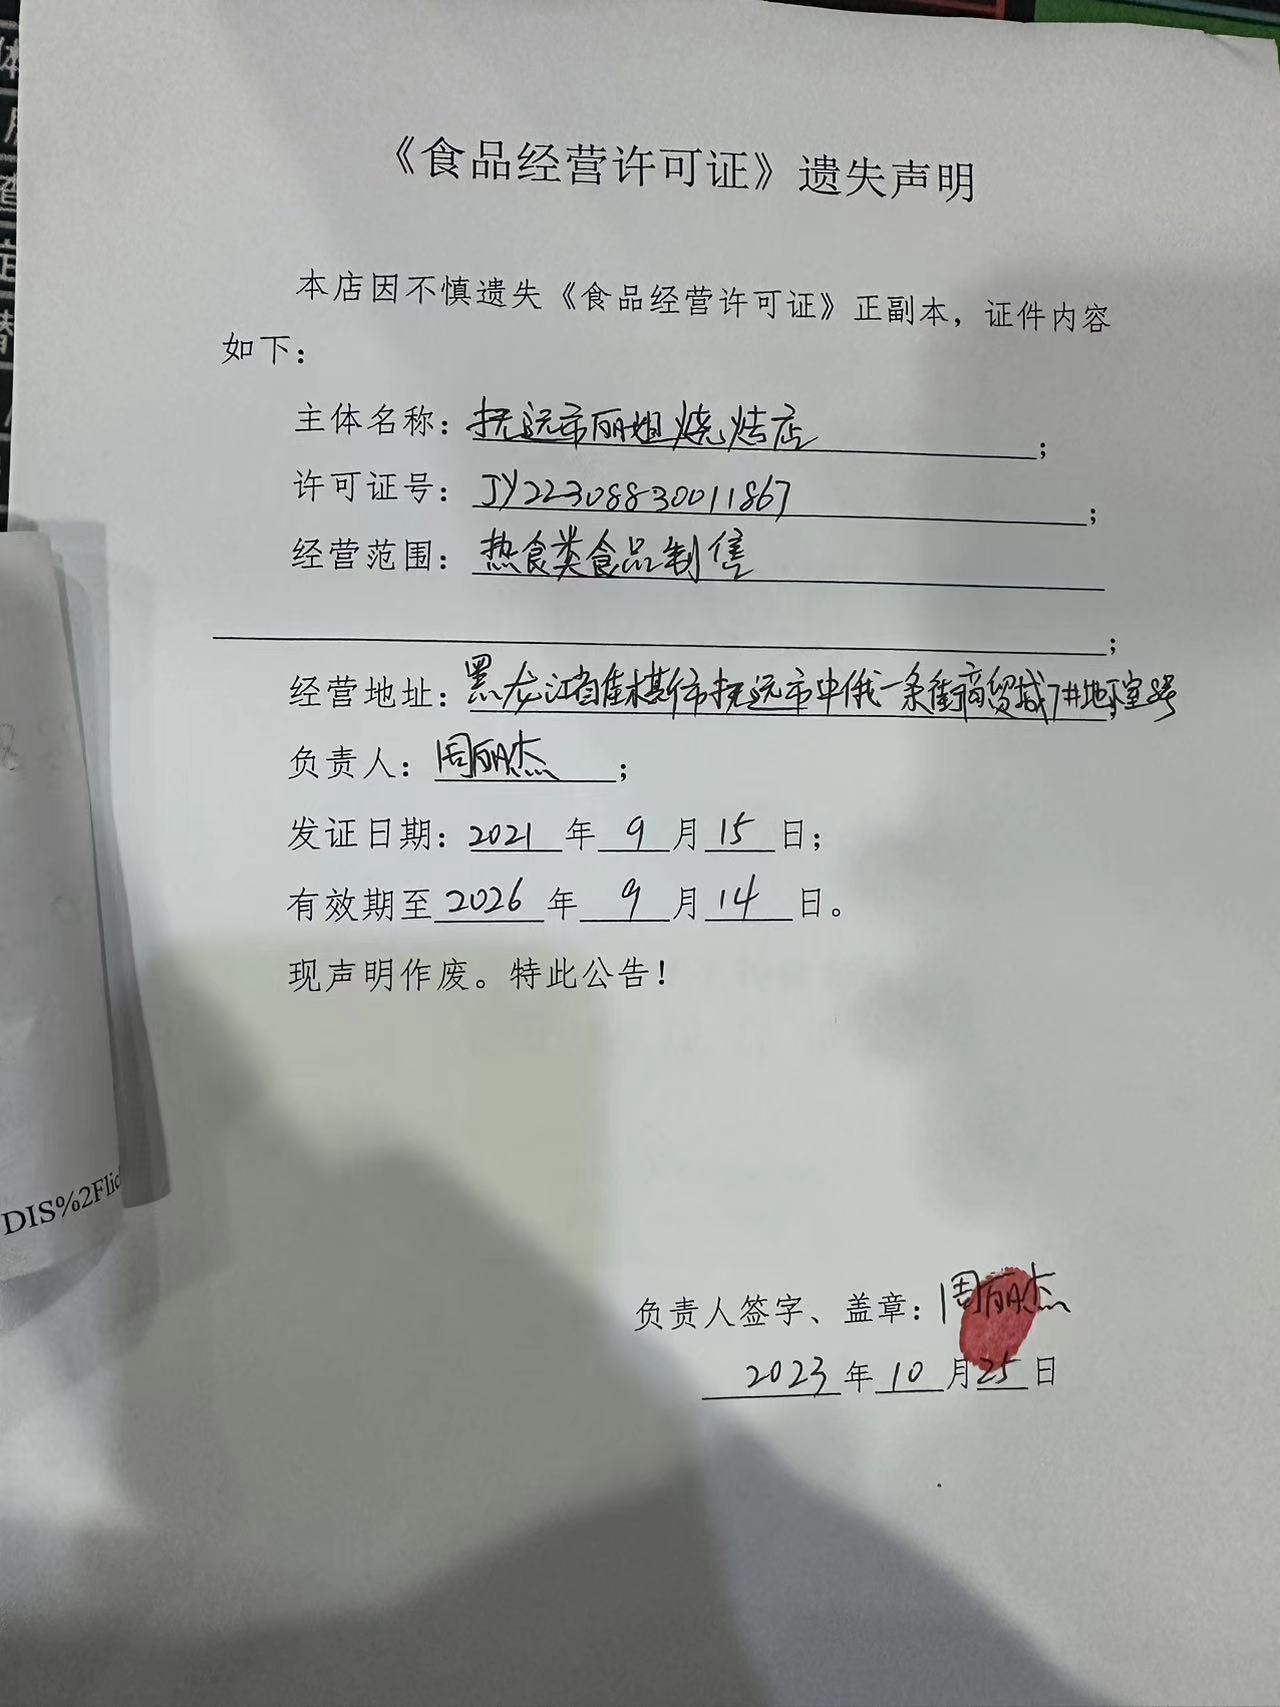 《食品经营许可证》遗失声明
本店因不慎遗失《食品经营许可证》正副本，证件内容
如下：
主体名称：抚远市丽姐烧烤店；
许可证号：JY22308830011867；
经营范围：热食类食品制售
；
经营地址：黑龙江省佳木斯市抚远市中俄一条街商贸城7#地下室号
负责人：周丽杰；
发证日期：2021年9月15日；
有效期至2026年9月14日。
现声明作废。特此公告！
DIS%2Flic
负责人签字、盖章：周丽杰
2023年10月25日